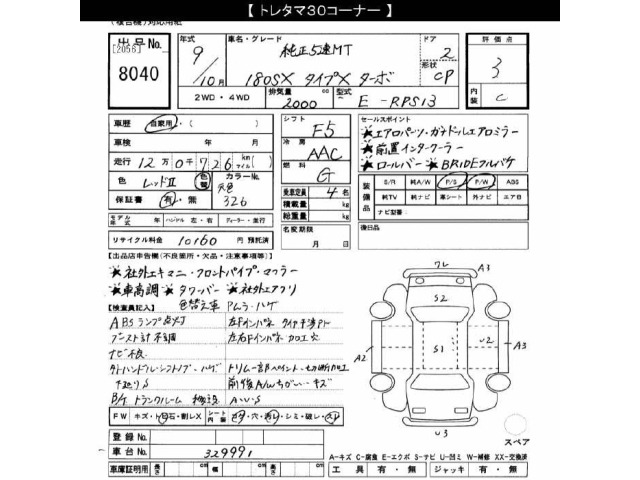 【 トレタマ30コーナー 】
出品No.
[2056]
8040
年式 車名・グレード ドア 評価点
9 純正5速MT 2 3
10月 180SX タイプX ターボ 形状 CP
2WD・4WD 排気量 2000 cc 型式 E-RPS13 内装 C
車歴 自家用・( )
車検 年 月
走行 12万0千726 km マイル
色 レッドII 色替 カラーNo. 元色
保証書 有・無 326
モデル年式 年 ハンドル 左・右 ディーラー・並行
リサイクル料金 10160 円 預託済
シフト F5
冷房 AAC
燃料 G
乗車定員 4 名
積載量 kg
総重量 kg
名変期限
月 日
セールスポイント
★エアロパーツ・ガナドールエアロミラー
★前置インタークーラー
★ロールバー ★BRIDEフルバケ
装備品 S/R 純A/W P/S P/W ABS
純TV 純ナビ 革シート 外ナビ エアB
ナビ型番
後日品
【出品店申告欄(不良箇所・欠品・注意事項等)】
★社外エキマニ・フロントパイプ・マフラー
★車高調 ★タワーバー ★社外エアクリ
【検査員記入】 色替え車
ABSランプ点灯
ブースト計不調
ナビ不良
FW キズ・飛石・割レX シート内張 コゲ・穴・汚レ・シミ・破レ・スレ
登録No.
車台No. 329991
車庫証明用 長 cm 幅 cm 高 cm
クレ A3
S2
A2 S1 U2 A3
U3
スペア
A-キズ C-腐食 E-エクボ S-サビ U-凹ミ W-補修 XX-交換済
工具 有・無 ジャッキ 有・無